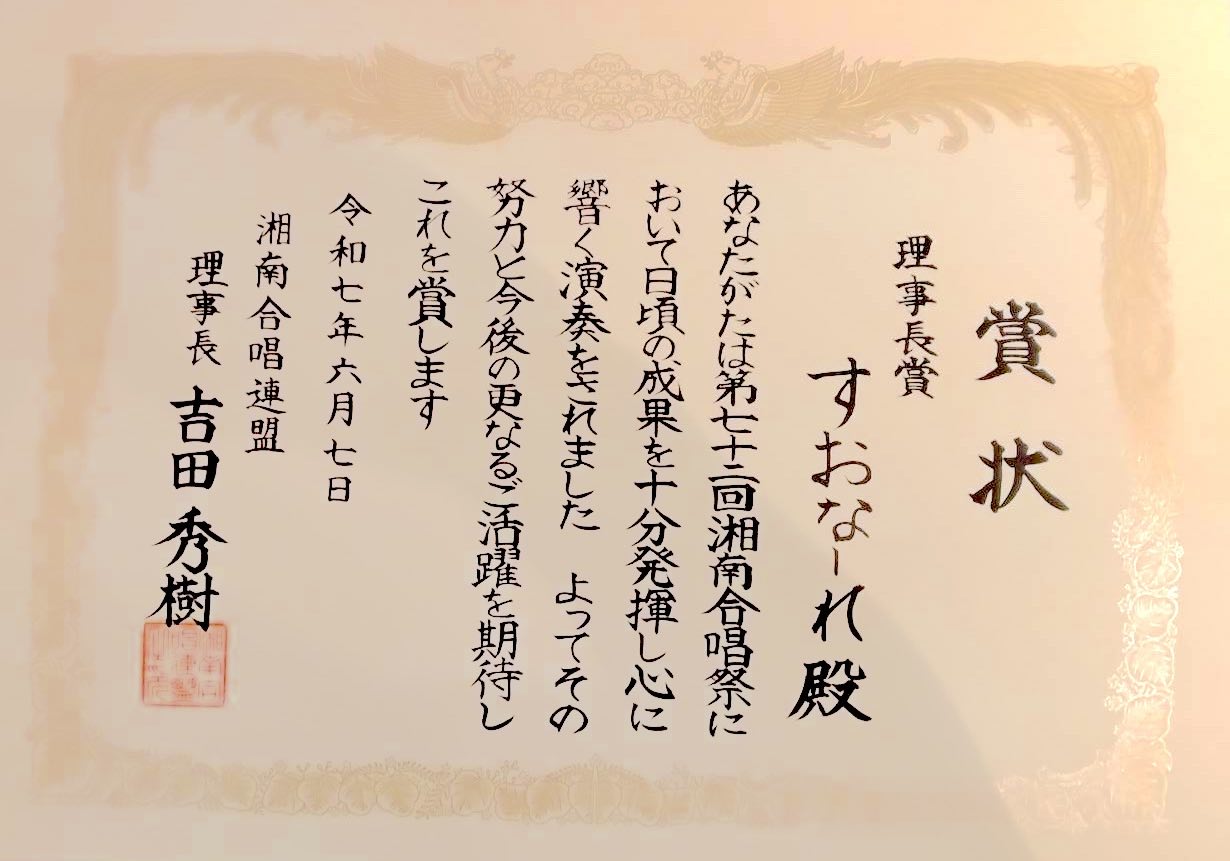 賞状
理事長賞
すおなーれ殿
あなたがたは第七十二回湘南合唱祭に
おいて日頃の成果を十分発揮し心に
響く演奏をされました　よってその
努力と今後の更なるご活躍を期待し
これを賞します
令和七年六月七日
湘南合唱連盟
理事長 吉田秀樹